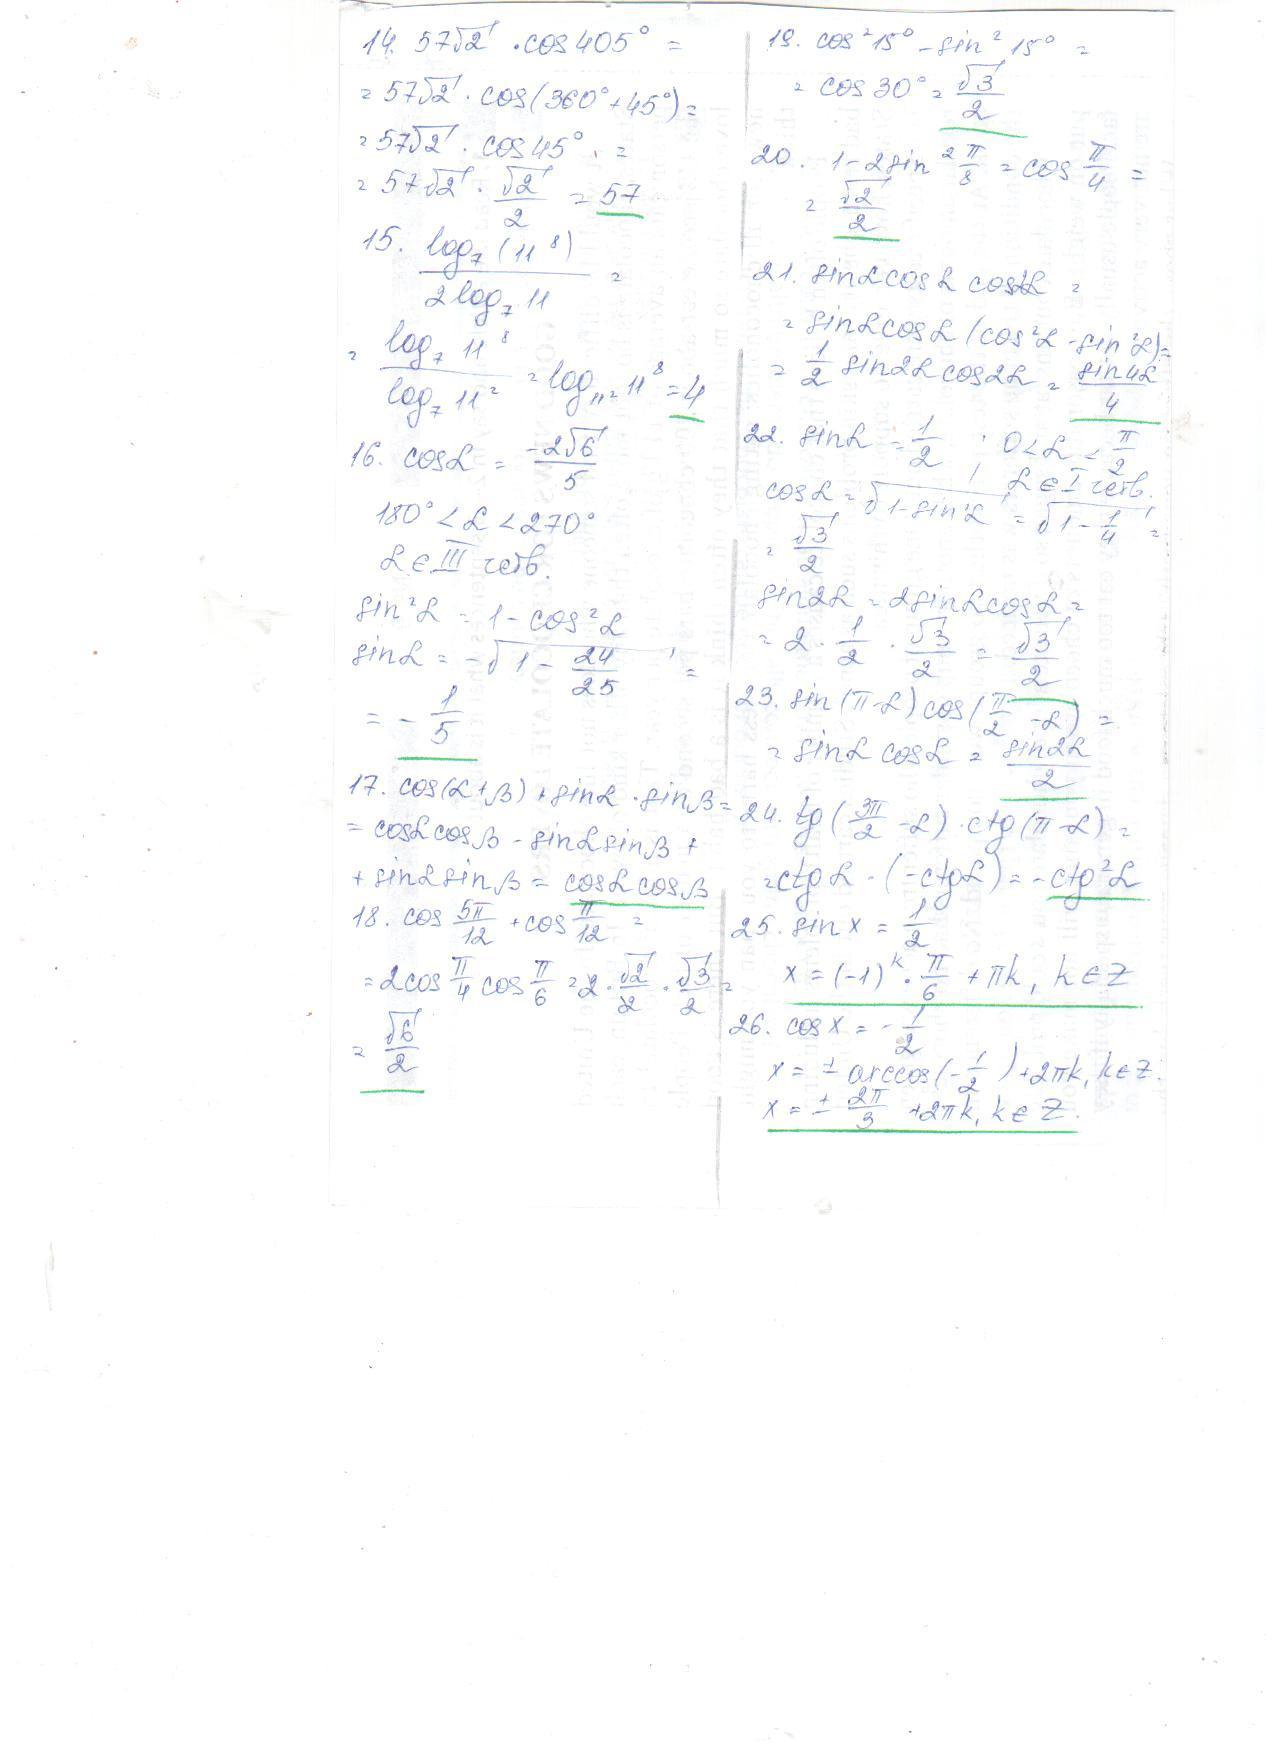 14. 57√2 · cos 405° =
= 57√2 · cos(360° + 45°) =
= 57√2 · cos 45° =
= 57√2 · √2/2 = 57
15. log₇(11⁸) / 2log₇11 =
= log₇11⁸ / log₇11² = log₁₁²11⁸ = 4
16. cosα = -2√6/5
180° < α < 270°
α ∈ III четв.
sin²α = 1 - cos²α
sinα = -√(1 - 24/25) =
= - 1/5
17. cos(α+β) + sinα · sinβ =
= cosα cosβ - sinα sinβ +
+ sinα sinβ = cosα cosβ
18. cos 5π/12 + cos π/12 =
= 2cos π/4 cos π/6 = 2 · √2/2 · √3/2 =
= √6/2
19. cos²15° - sin²15° =
= cos 30° = √3/2
20. 1 - 2sin² π/8 = cos π/4 =
= √2/2
21. sinα cosα cos2α =
= sinα cosα (cos²α - sin²α) =
= 1/2 sin2α cos2α = sin4α/4
22. sinα = 1/2 ; 0 < α < π/2
α ∈ I четв.
cosα = √(1 - sin²α) = √(1 - 1/4) =
= √3/2
sin2α = 2sinα cosα =
= 2 · 1/2 · √3/2 = √3/2
23. sin(π-α) cos(π/2 - α) =
= sinα cosα = sin2α/2
24. tg(3π/2 - α) · ctg(π-α) =
= ctgα · (-ctgα) = -ctg²α
25. sin x = 1/2
x = (-1)ᵏ · π/6 + πk, k ∈ Z
26. cos x = - 1/2
x = ± arccos(- 1/2) + 2πk, k ∈ Z.
x = ± 2π/3 + 2πk, k ∈ Z.